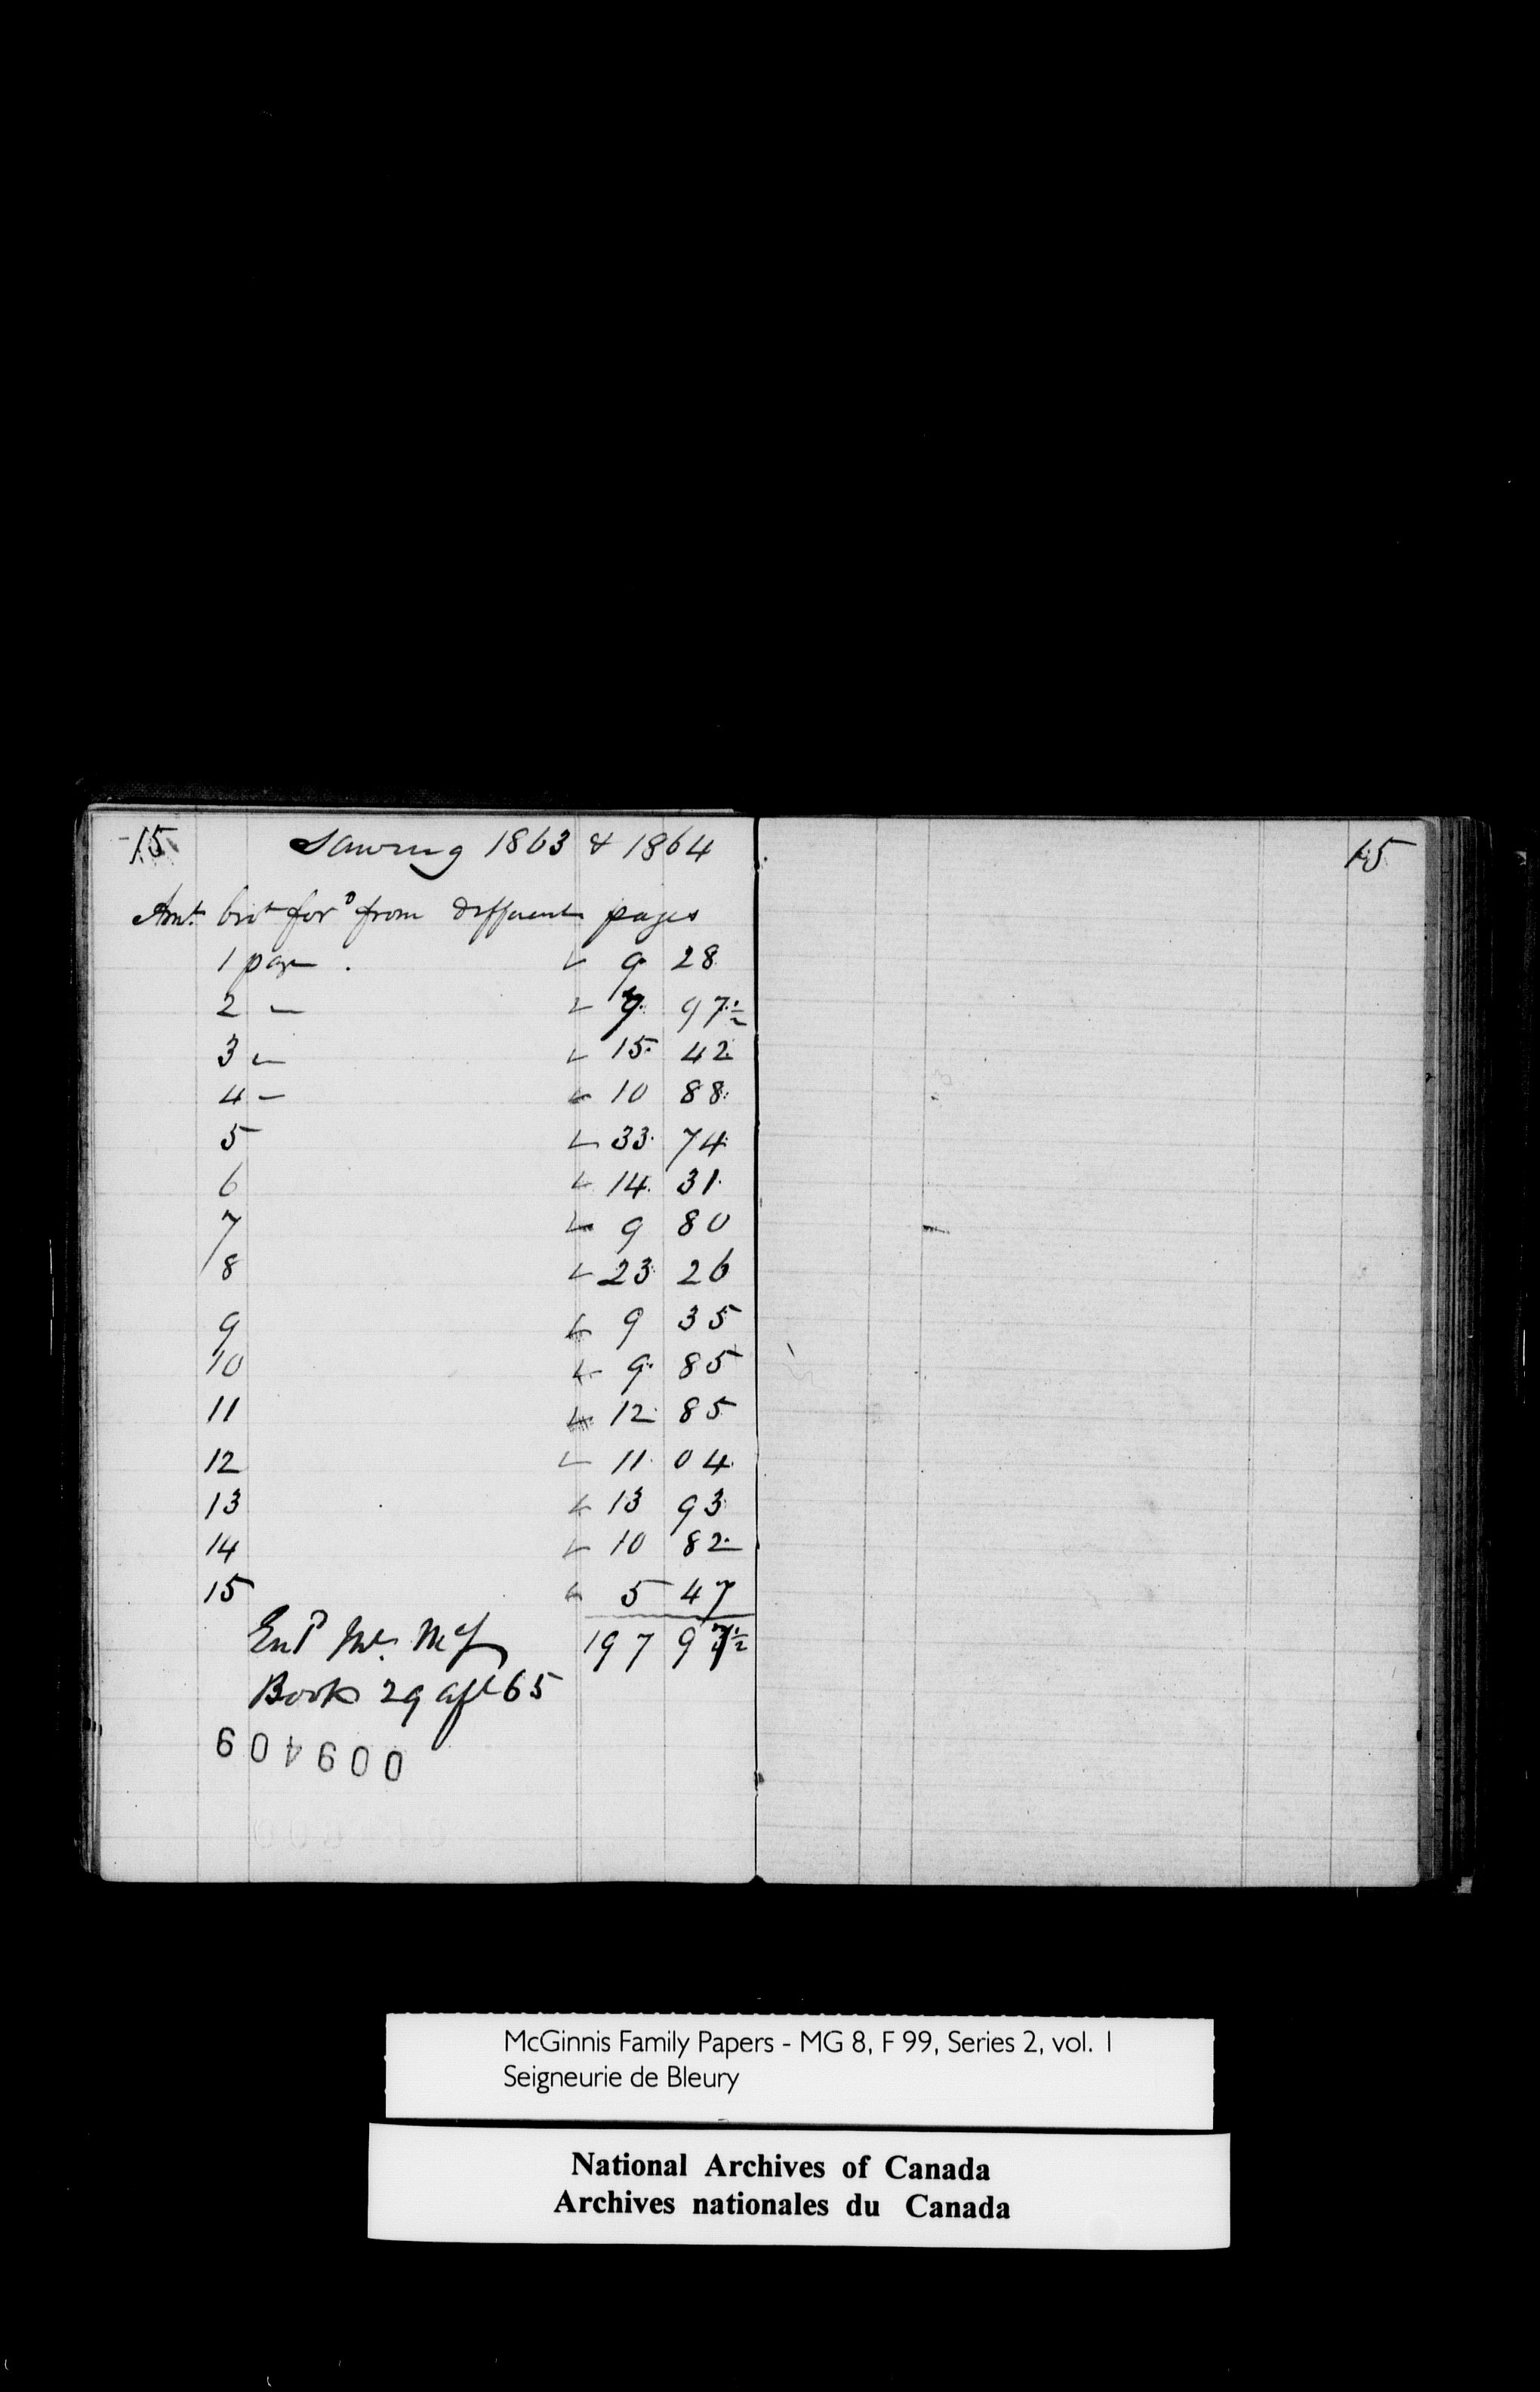 15 Sawing 1863 & 1864
Amt. brot for^D from different pages
1 page . ✓ 9 28
2 — ✓ 7 97½
3 — ✓ 15 42
4 — ✓ 10 88
5 ✓ 33 74
6 ✓ 14 31
7 ✓ 9 80
8 ✓ 23 26
9 ✓ 9 35
10 ✓ 9 85
11 ✓ 12 85
12 ✓ 11 04
13 ✓ 13 93
14 ✓ 10 82
15 ✓ 5 47
197 97½
Book 29 apl 65
009409
15
McGinnis Family Papers - MG 8, F 99, Series 2, vol. 1
Seigneurie de Bleury
National Archives of Canada
Archives nationales du Canada